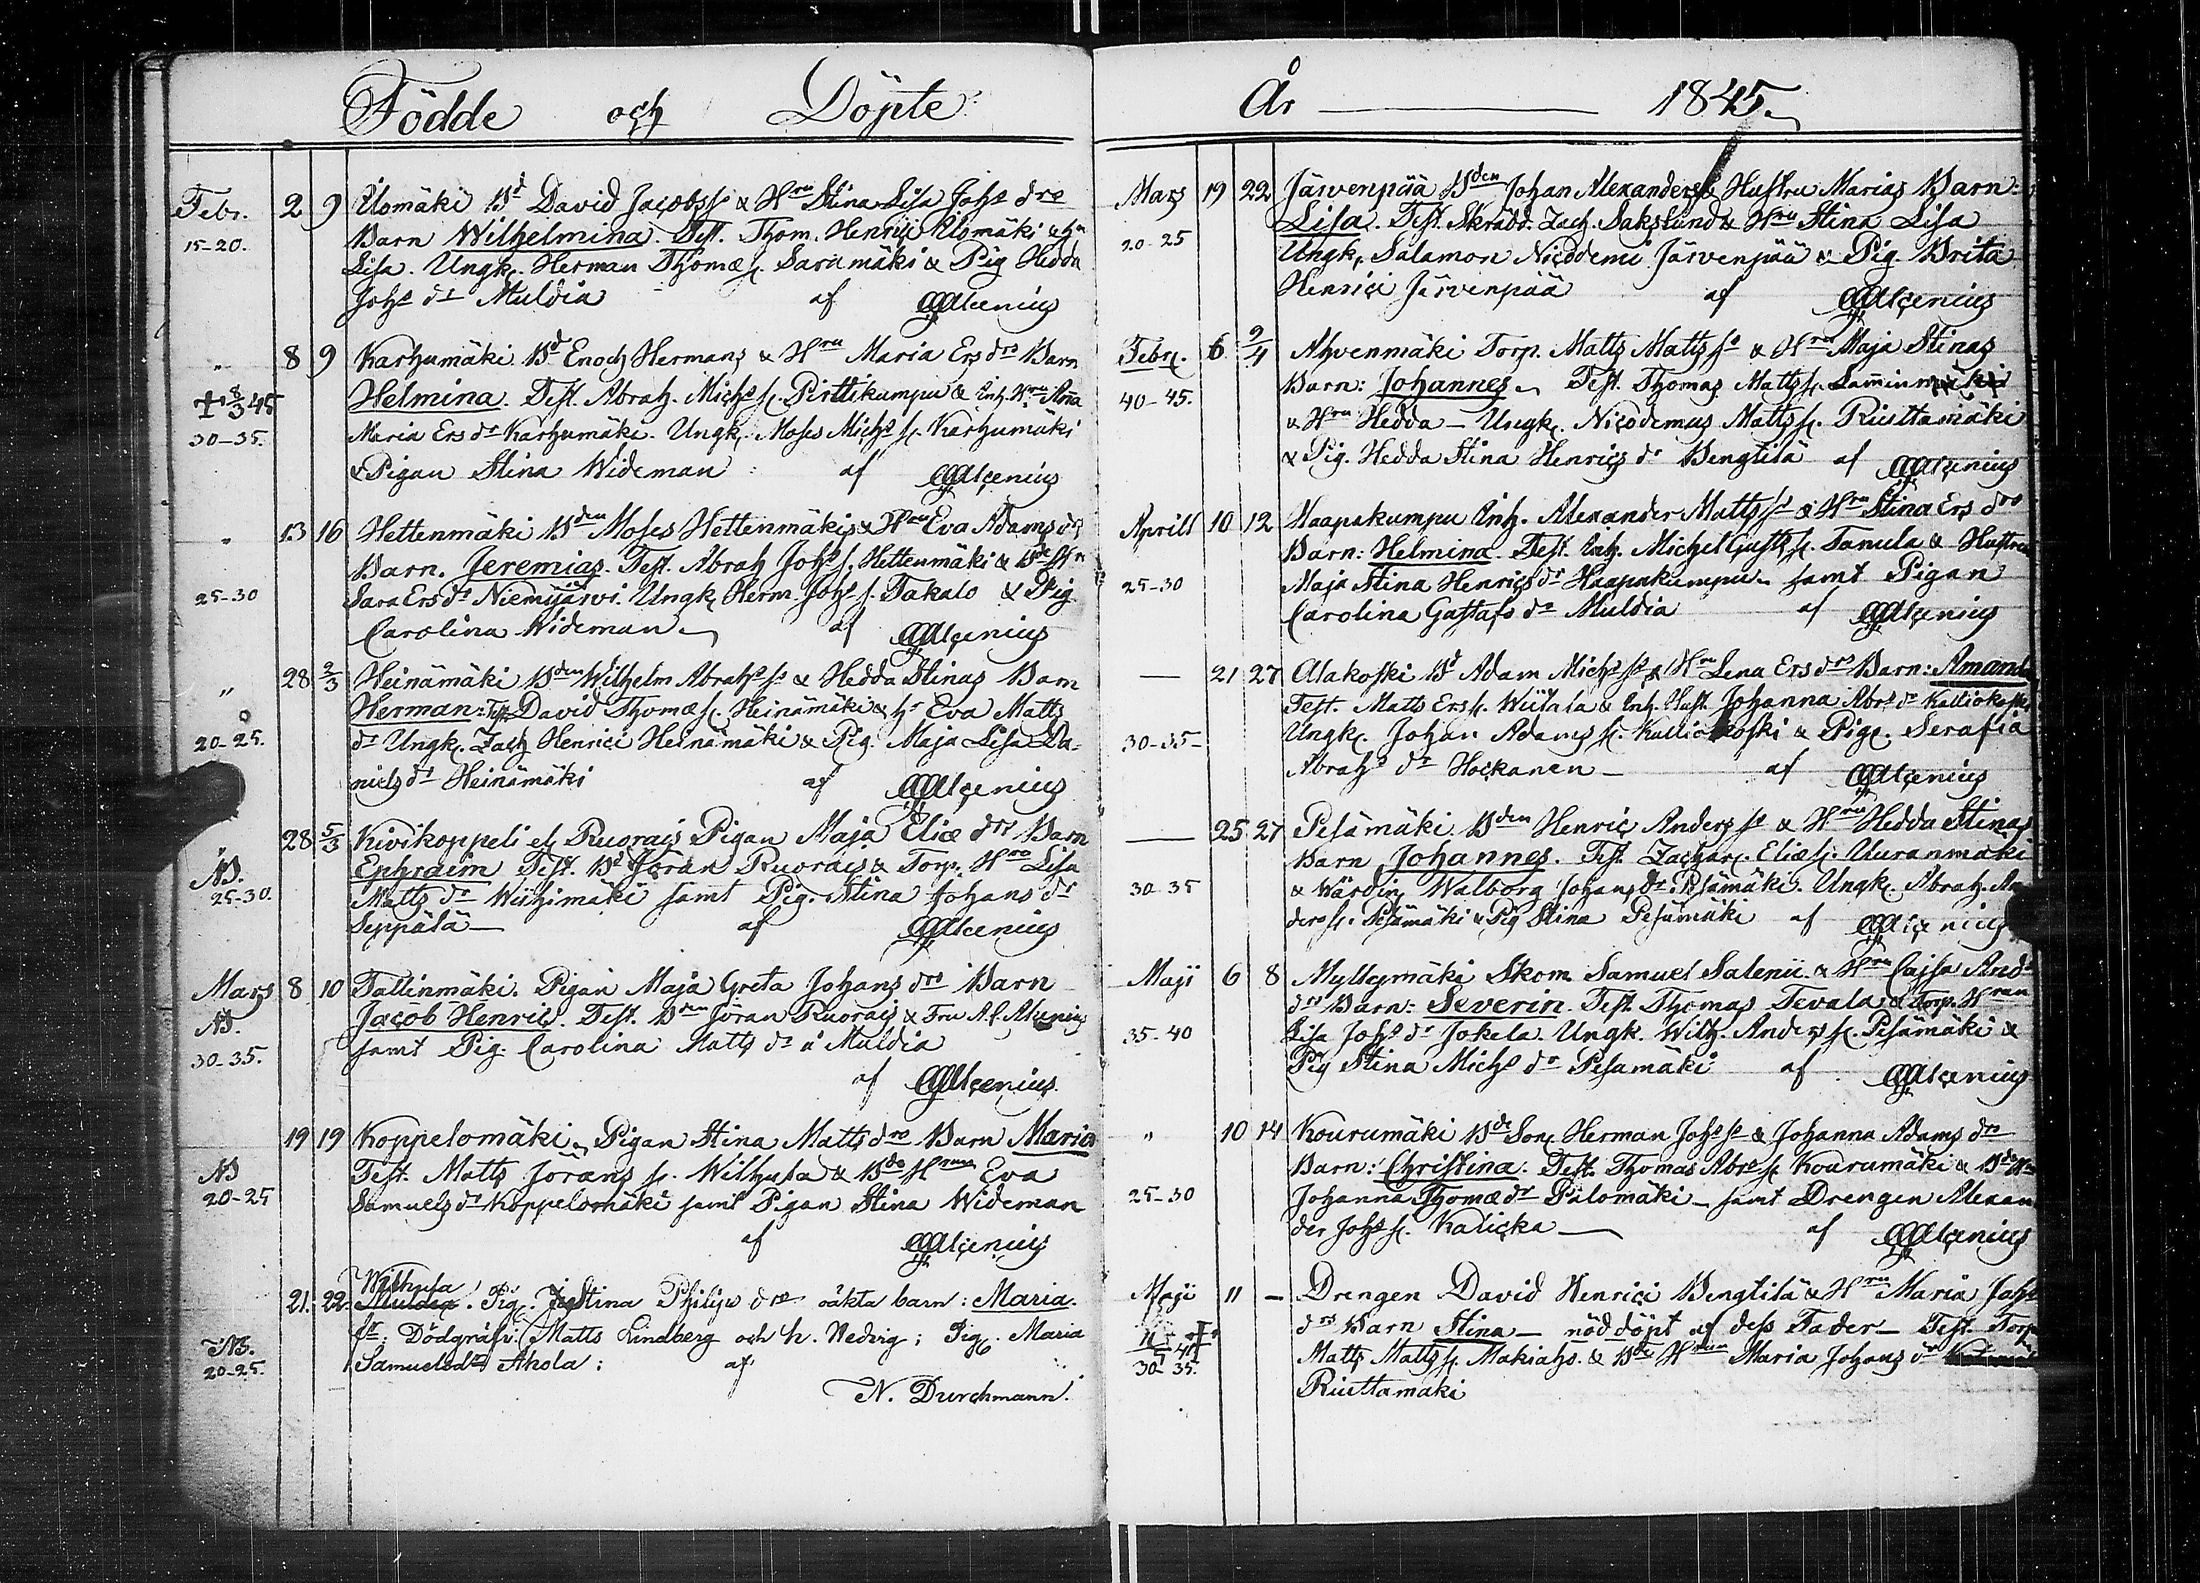 Födde och Döpte
Febr. 2 9 Ulomäki Bd David Jacobss. & Hru Stina Lisa Johs drs
15-20. Barn Wilhelmina. Test. Thom. Henrici Ulomäki & Hu
Lisa. Ungk. Herman Thomæ s. Sarumäki & Pig Hedda
Johs dr Muldia af Alcenius
" 8 9 Karhumäki Bd Enoch Hermans & Hru Maria Ers drs Barn
+ 8/3 45 Helmina. Test. Abrah. Michs s. Pirttikumpu & Inh. Hru Anna
30-35. Maria Ers dr Karhumäki. Ungk. Moses Michs s. Karhumäki
& Pigan Stina Wideman af Alcenius
" 13 16 Hettenmäki Bden Moses Hettenmäkis & Hru Eva Adams drs
Barn. Jeremias. Test. Abrah Johs s. Hettenmäki & Bde Hn
25-30 Sara Ers dr Niemijärvi. Ungk Herm. Johs s. Takalo & Pig
Carolina Wideman af Alcenius
" 28 2/3 Heinämäki Bden Wilhelm Abrahs s. & Hedda Stinas Barn
Herman: Test. David Thomæ s. Heinämäki & hr Eva Matts
20-25. dr Ungk. Zach Henrici Heinämäki & Pig. Maja Lisa Da-
niels dr Heinämäki af Alcenius
" 28 5/3 Kivikoppeli el. Ruorais Pigan Maja Eliæ drs Barn
NB. Ephraim Test. Bd Jöran Ruorais & Torp. Hru Lisa
25-30. Matts dr Wiihimäki samt Pig. Stina Johans dr
Seppälä af Alcenius
Mars 8 10 Tallinmäki. Pigan Maja Greta Johans drs Barn
NB. Jacob Henric. Test. Bden Jöran Ruorais & Fru A. C. Alcenius
30-35. samt Pig. Carolina Matts dr å Muldia
af Alcenius.
19 19 Koppelomäki Pigan Stina Matts drs Barn Maria
NB Test. Matts Jörans s. Wilhula & Bde Hrun Eva
20-25 Samuels dr Koppelomäki samt Pigan Stina Wideman
af Alcenius
Wilhula
21. 22. Muldia. Pig. Stina Philips drs oäkta barn: Maria.
fr: Dödgräfv. Matts Lindberg och h. Hedvig; Pig. Maria
NB. 20-25. Samuelsdr Ahola: af
N. Durchmann.
År 1845.
Mars 19 22 Järvenpää Bden Johan Alexanders & Hustru Marias Barn:
Lisa. Test. Skrädd. Zach. Sakslund & Hru Stina Lisa
20-25 Ungk. Salamon Nicodemi Järvenpää & Pig. Brita
Henrici Järvenpää af Alcenius
Febr. 6 9/4 Ahvenmäki Torp. Matts Matts so & Hru Maja Stinas
40-45. Barn: Johannes. Test. Thomas Matts s. Lamminmäki
& Hru Hedda - Ungk. Nicodemus Matts s. Riuttamäki
& Pig. Hedda Stina Henrics dr Bengtilä af Alcenius
Aprill 10 12 Haapakumpu Inh. Alexander Matts s. & Hru Stina Ers drs
Barn: Helmina. Test. Inh. Michel Gusts s. Tanula & Hustru
25-30 Maja Stina Henrics dr Haapakumpu samt Pigan
Carolina Gustafs dr Muldia af Alcenius
— 21 27 Alakoski Bd Adam Michs s. & Hru Lena Ers drs Barn: Amanda
Test. Matts Ers s. Wiitala & Inh. Hust. Johanna Abrs dr Kalliokoski
30-35 Ungk. Johan Adams s. Kalliokoski & Pig. Serafia
Abrahs dr Hockanen af Alcenius
— 25 27 Pesämäki Bden Henric Anders so & Hru Hedda Stinas
Barn Johannes. Test. Zachar. Eliæ s. Uuranmäki
30-35 & Wärdin Walborg Johans dr Pesämäki. Ungk. Abrah. An
ders s. Pesämäki & Pig Stina Pesämäki af Alcenius
Maji 6 8 Myllymäki Skom. Samuel Salenii & Hru Cajsa And
drs Barn: Severin. Test. Thomas Tevala & Torp. Hrun
35-40 Lisa Johs dr Jokela. Ungk. Wilh. Anders s. Pesämäki &
Pig Stina Michs dr Pesämäki af Alcenius
" 10 14 Kourumäki Bde Son Herman Johs so & Johanna Adams drs
Barn: Christina. Test. Thomas Abrs s. Kourumäki & Bde Hn
25-30 Johanna Thomæ dr Piilomäki samt Drengen Alexan
der Johs s. Kalicka af Alcenius
Maji 11 — Drengen David Henrici Bengtilä & Hru Maria Johs
drs Barn Stina — nöddöpt af dess Fader — Test. Torp
30-35. Matts Matts s. Makiaho. & Bde Hrun Maria Johans dr
Riuttamäki